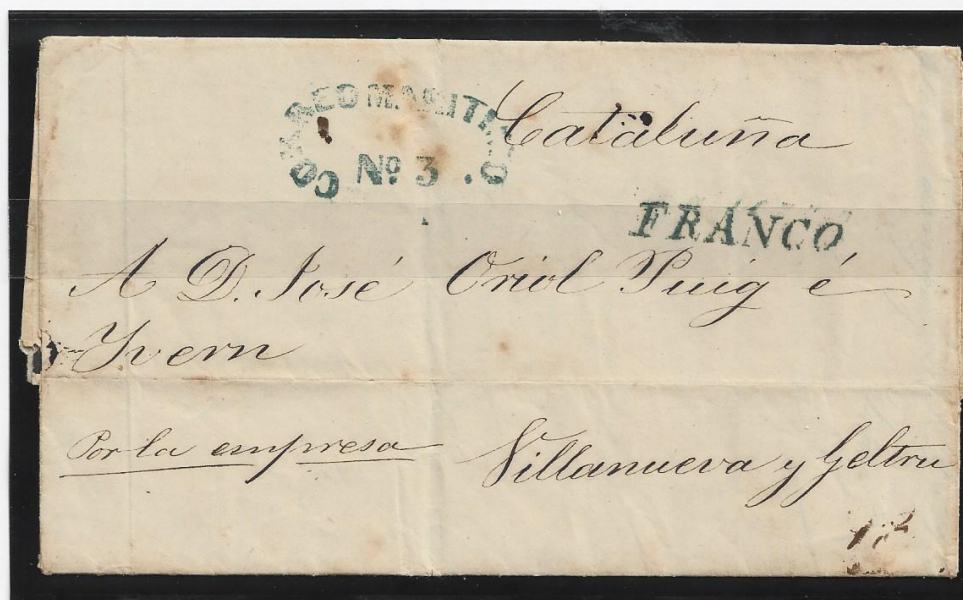 CORREO MARITIMO
Nº 3.
Cataluña
FRANCO
A D. José Oriol Puig é
Yvern
Por la empresa
Villanueva y Geltru